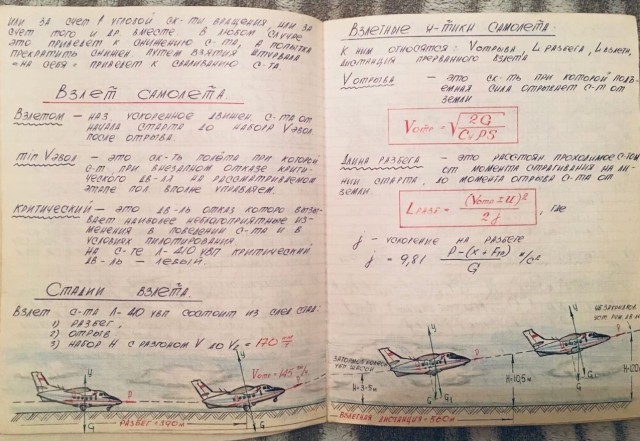 или за счет ↑ угловой ск-ти вращения или за
счет того и др. вместе. В любом случае
это приведет к снижению с-та, а попытка
прекратить снижен. путем взятия штурвала
«на себя» приведет к сваливанию с-та.
Взлет самолета.
Взлетом — наз. ускоренное движен. с-та от
начала старта до набора V эвол.
после отрыва.
min V эвол — это ск-ть полёта при которой
с-т при внезапном отказе крити-
ческого дв-ля на рассматриваемом
этапе пол. вполне управляем.
Критический — это дв-ль отказ которо вызы-
вает наиболее неблагоприятные из-
менения в поведении с-та и в
условиях пилотирования.
На с-те Л-410 увп критический
дв-ль — левый.
Стадии взлета.
Взлет с-та Л-410 увп состоит из след. стад:
1) разбег,
2) отрыв,
3) набор H с разгоном V до V₂ = 170
Y
P
G
Разбег = 390 м
Y
Vотр = 145
G
Взлетные х-тики самолета.
К ним относятся: V отрыва, L разбега, L взлетн.
дистанция прерванного взлета
V отрыва — это ск-ть при которой подъ-
емная сила отрывает с-т от
земли
Vотр = √ 2G / Cy ρ S
Длина разбега — это расстоян. проходимое с-том
от момента страгивания на ли-
нии старта, до момента отрыва с-та от
земли.
L разб = (Vотр ± U)² / 2j, где
j — ускорение на разбеге
j = 9,81 P − (X + Fтр) / G м/с²
Y
P
H = 3-5 м
G
G₁
H = 10,5 м
Y
P
G
G₁
Взлетная дистанция = 560 м